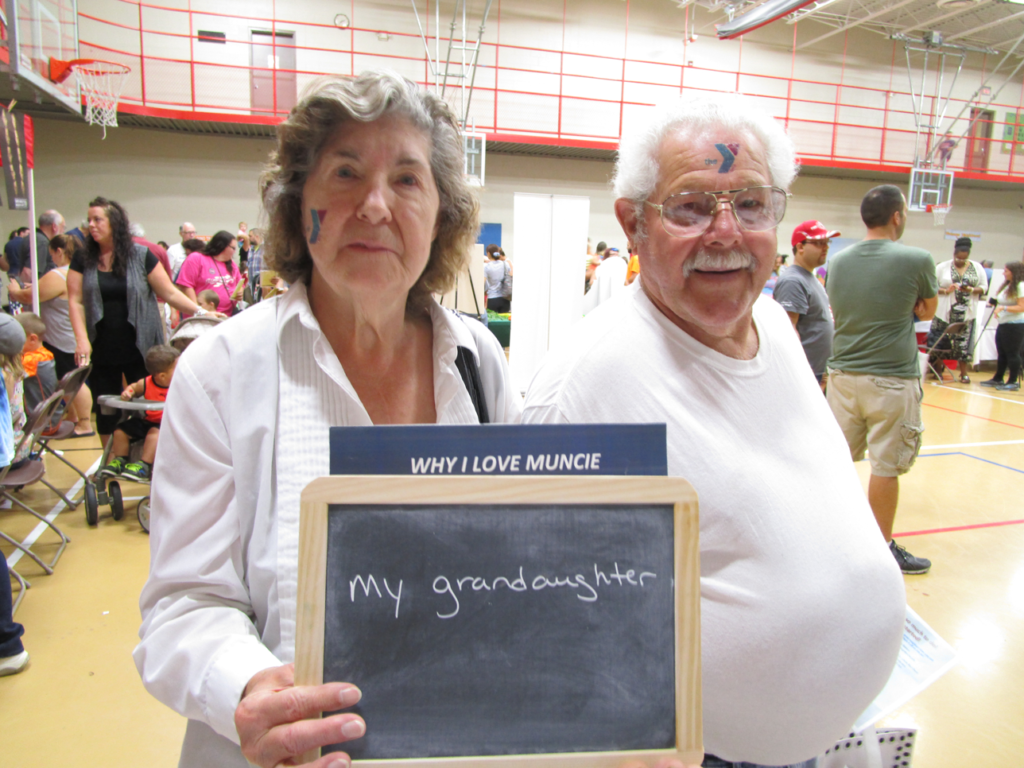 WHY I LOVE MUNCIE
My grandaughter